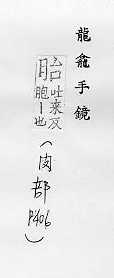 龍龕手鏡
胎
吐来反
胞丨也
(肉部
P406)